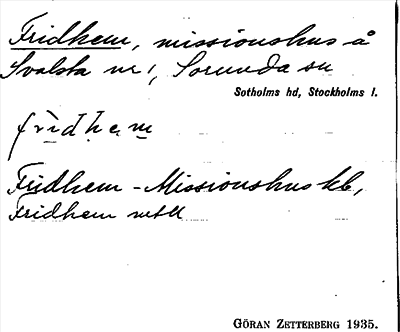 Fridhem, missionshus å
Svalsta nr 1, Sorunda sn
Sotholms hd, Stockholms l.
fridhem
Fridhem - Missionshus kb,
Fridhem
GÖRAN ZETTERBERG 1935.